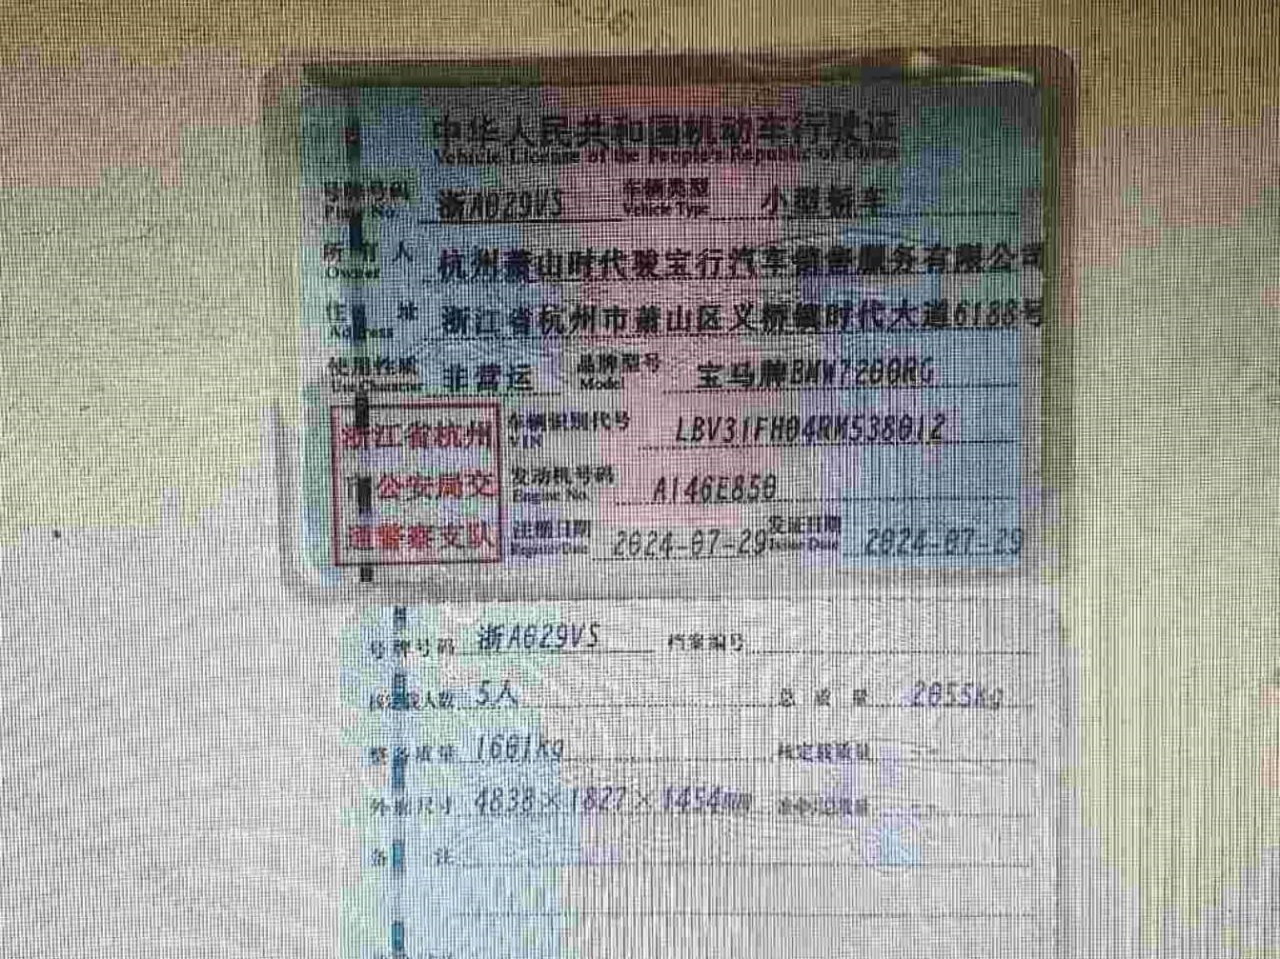 中华人民共和国机动车行驶证
Vehicle License of the People's Republic of China
号牌号码 浙A029VS 车辆类型 小型轿车
Plate No. Vehicle Type
所有人 杭州萧山时代骏宝行汽车销售服务有限公司
Owner
住址 浙江省杭州市萧山区义桥镇时代大道6188号
Address
使用性质 非营运 品牌型号 宝马牌BMW7200RG
Use Character Model
浙江省杭州 车辆识别代号 LBV31FH04RM538012
VIN
市公安局交 发动机号码 A146E850
Engine No.
通警察支队 注册日期 2024-07-29 发证日期 2024-07-29
Register Date Issue Date
号牌号码 浙A029VS 档案编号
核定载人数 5人 总质量 2055kg
整备质量 1601kg 核定载质量 --
外廓尺寸 4838×1827×1454mm --
备注